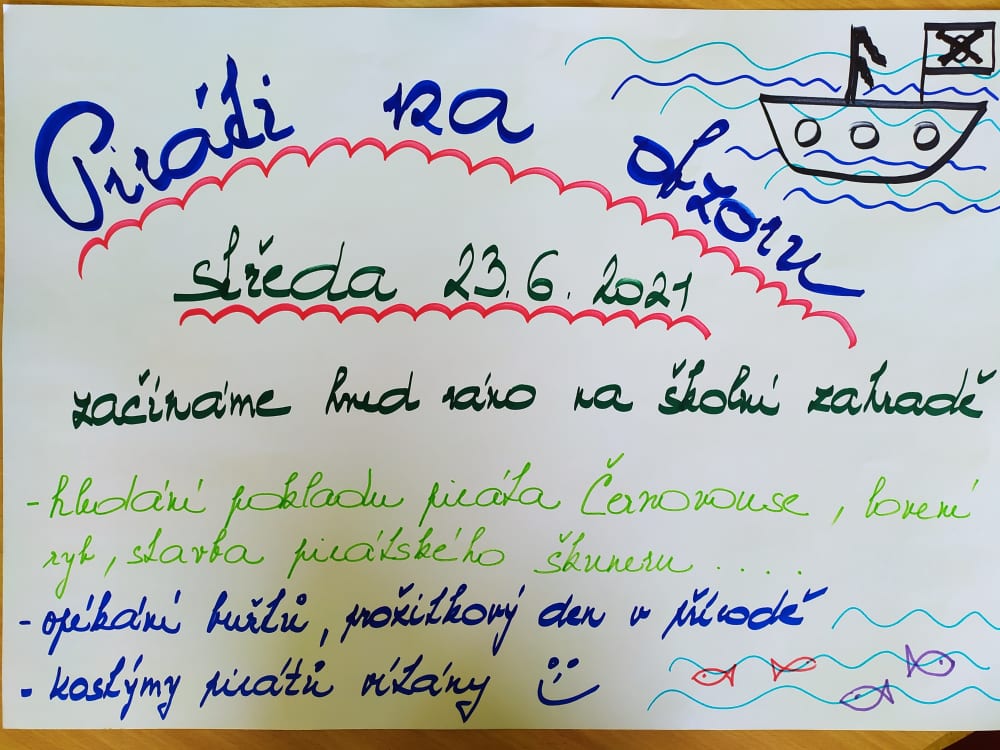 Piráti na obzoru
středa 23.6.2021
začínáme hned ráno na školní zahradě
- hledání pokladu piráta Černovouse, lovení
ryb, stavba pirátského škuneru . . . .
- opékání buřtů, prožitkový den v přírodě
- kostýmy pirátů vítány